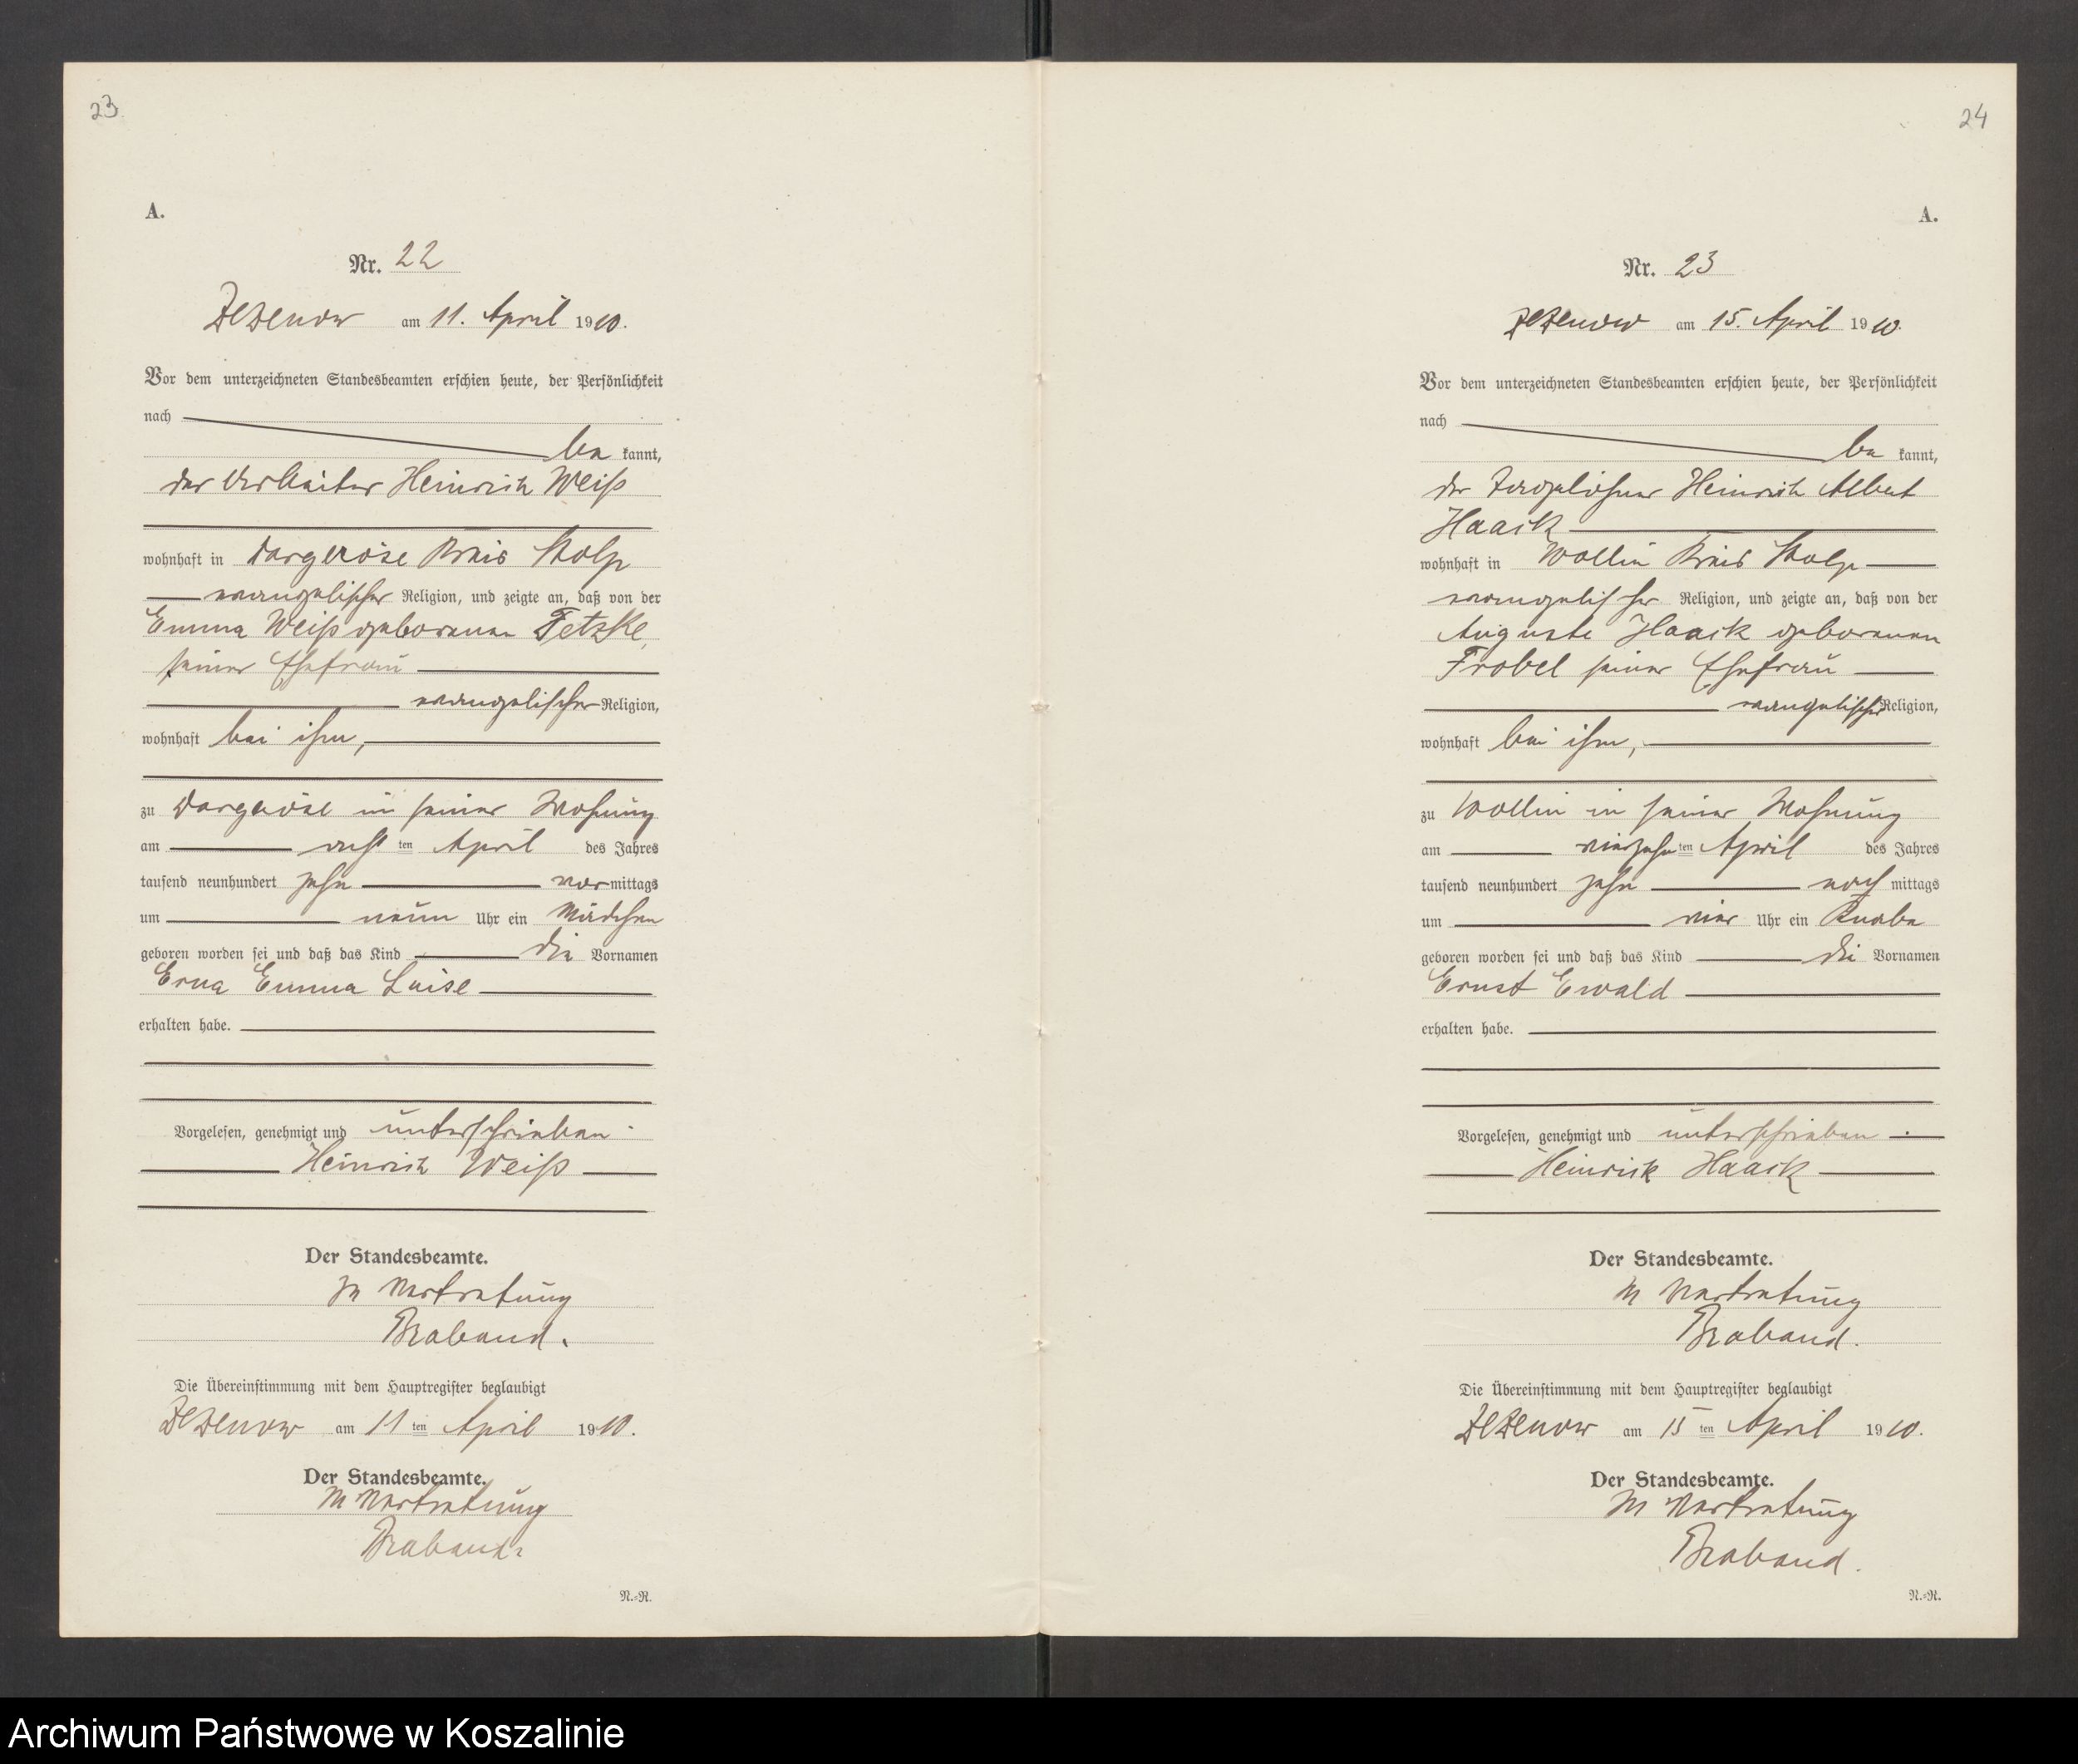 23
A.
Nr. 22
Zezenow am 11. April 1910.
Vor dem unterzeichneten Standesbeamten erschien heute, der Persönlichkeit
nach
be kannt,
der Arbeiter Heinrich Weiß
wohnhaft in Dargeröse Kreis Stolp
evangelischer Religion, und zeigte an, daß von der
Emma Weiß geborenen Fetzke,
seiner Ehefrau
evangelischer Religion,
wohnhaft bei ihm,
zu Dargeröse in seiner Wohnung
am acht ten April des Jahres
tausend neunhundert zehn vor mittags
um neun Uhr ein Mädchen
geboren worden sei und daß das Kind die Vornamen
Erna Emma Luise
erhalten habe.
Vorgelesen, genehmigt und unterschrieben
Heinrich Weiß
Der Standesbeamte.
In Vertretung
Braband.
Die Übereinstimmung mit dem Hauptregister beglaubigt
Zezenow am 11 ten April 1910.
Der Standesbeamte.
In Vertretung
Braband.
N.-R.
24
A.
Nr. 23
Zezenow am 15. April 1910.
Vor dem unterzeichneten Standesbeamten erschien heute, der Persönlichkeit
nach
be kannt,
der Tagelöhner Heinrich Albert
Haack
wohnhaft in Wollin Kreis Stolp
evangelischer Religion, und zeigte an, daß von der
Auguste Haack geborenen
Frobel seiner Ehefrau
evangelischer Religion,
wohnhaft bei ihm,
zu Wollin in seiner Wohnung
am vierzehn ten April des Jahres
tausend neunhundert zehn nach mittags
um vier Uhr ein Knabe
geboren worden sei und daß das Kind die Vornamen
Ernst Ewald
erhalten habe.
Vorgelesen, genehmigt und unterschrieben.
Heinrich Haack
Der Standesbeamte.
In Vertretung
Braband.
Die Übereinstimmung mit dem Hauptregister beglaubigt
Zezenow am 15 ten April 1910.
Der Standesbeamte.
In Vertretung
Braband.
N.-R.
Archiwum Państwowe w Koszalinie